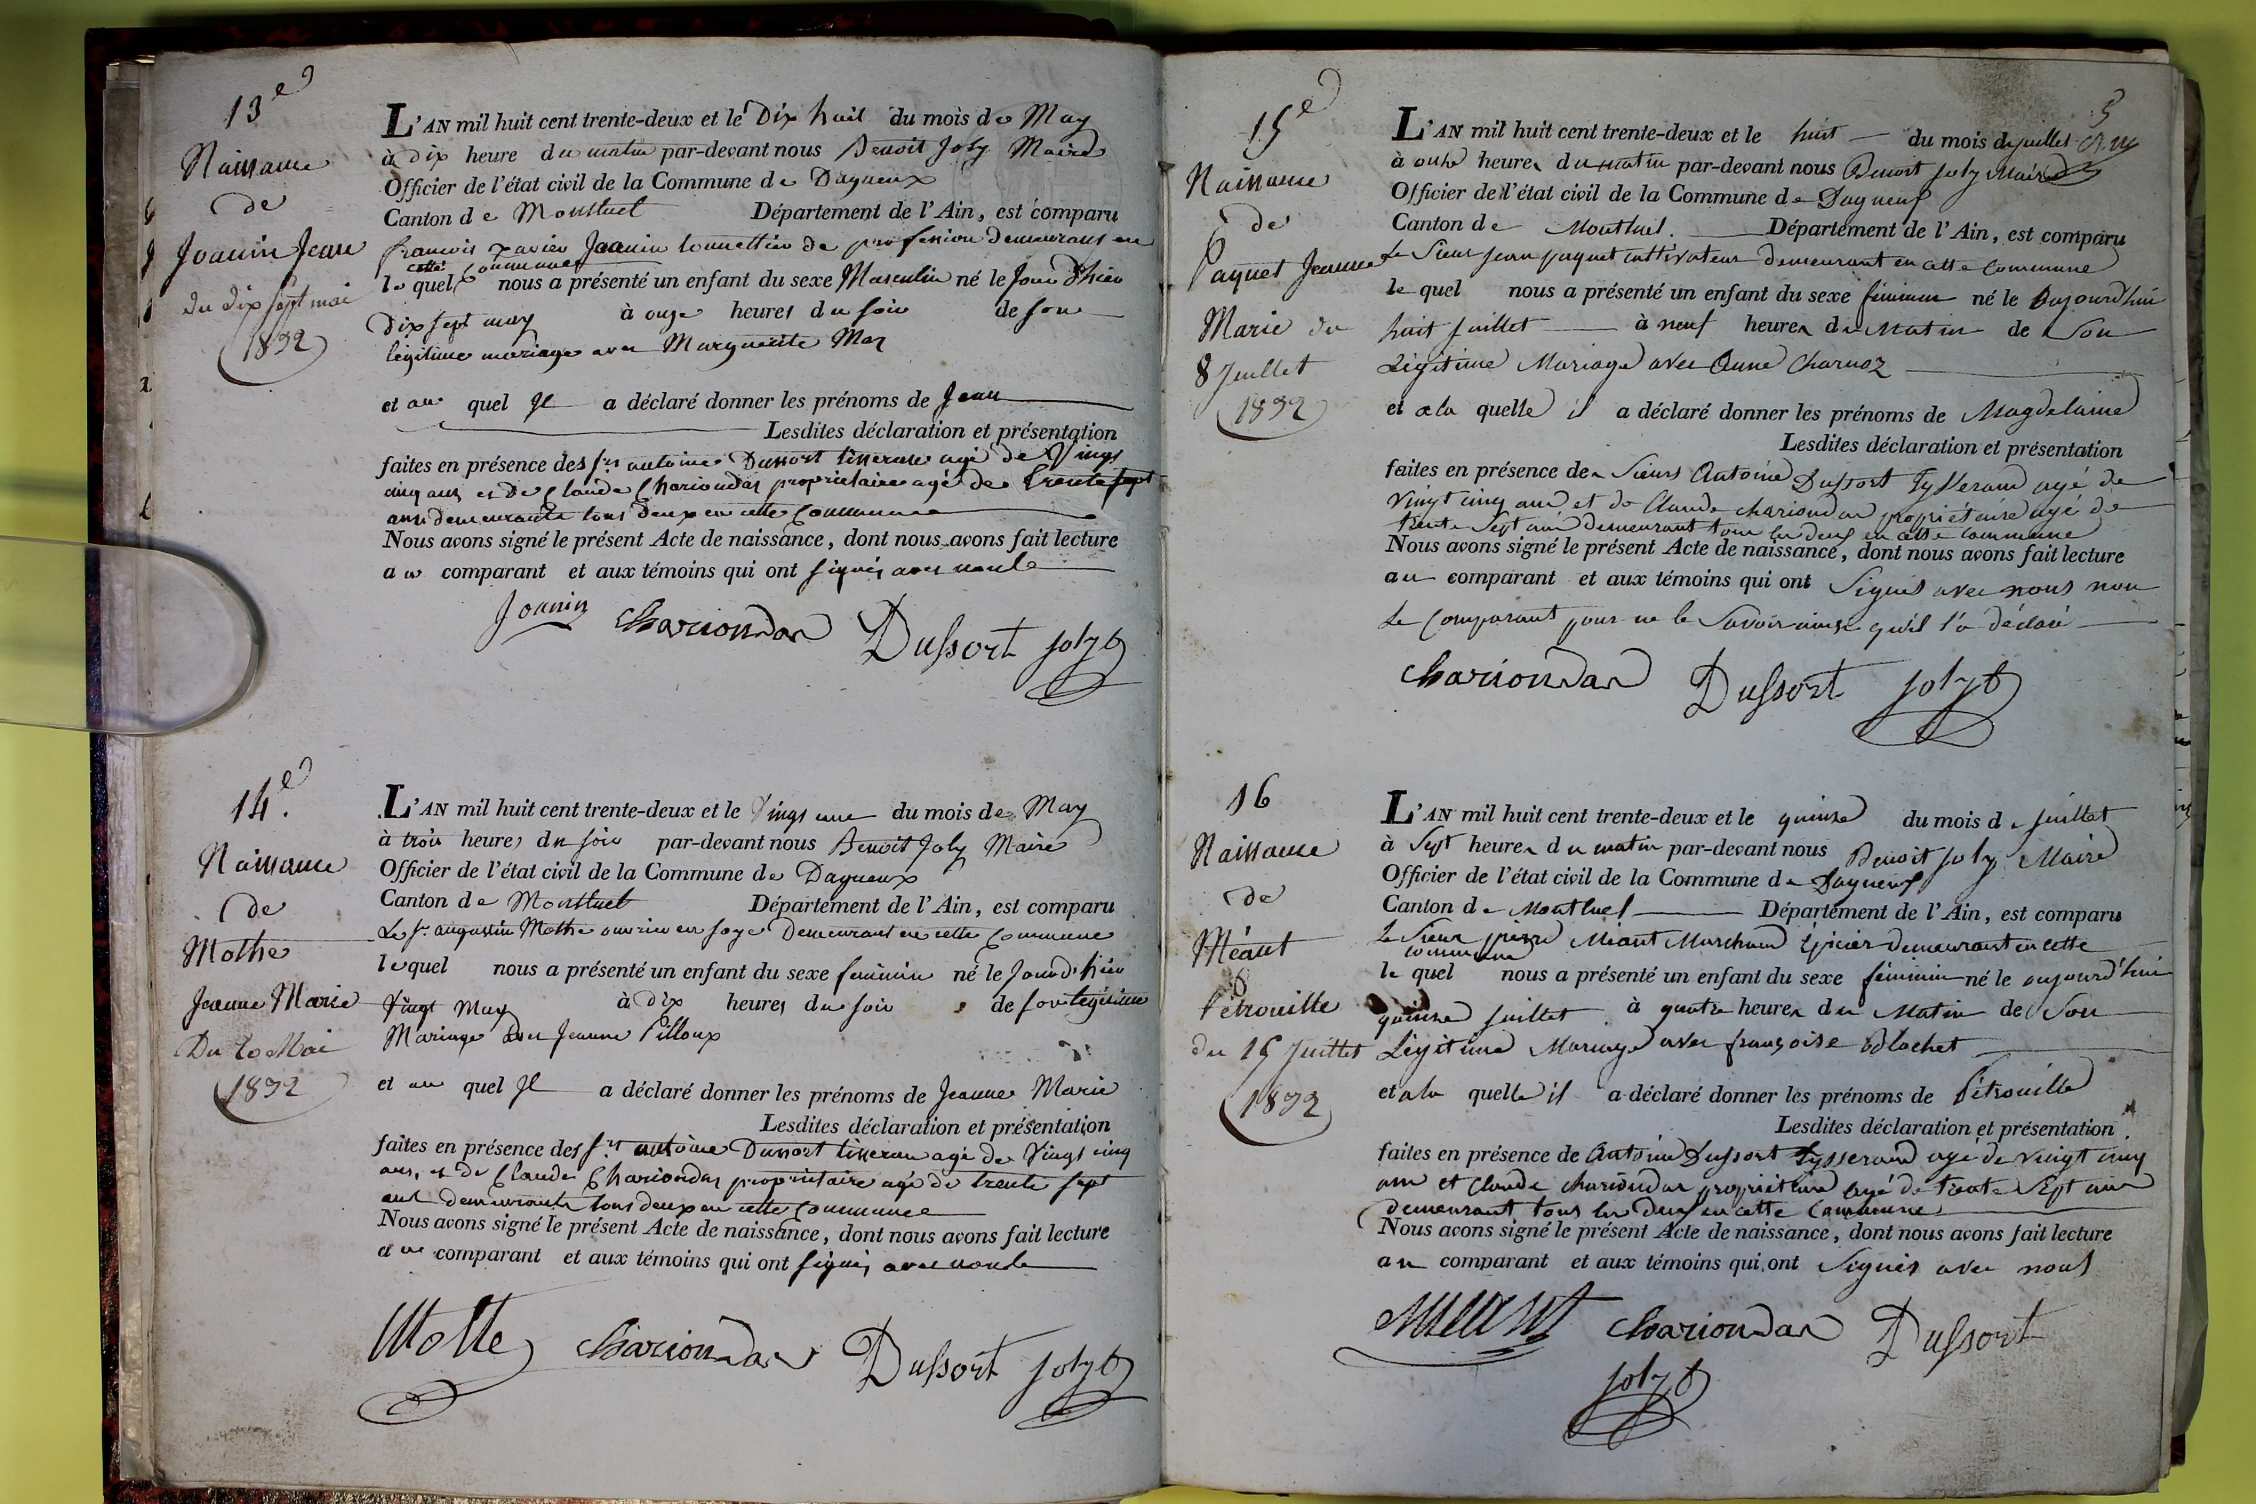 13e
Naissance
de
Joannin Jean
du dix sept mai
1832
L'AN mil huit cent trente-deux et le Dix huit du mois de May
à dix heure du matin par-devant nous Benoit Joly Maire
Officier de l'état civil de la Commune de Dagneux
Canton de Montluel Département de l'Ain, est comparu
francois xavier Joanin de profession demeurant en
cette Commune
lequel nous a présenté un enfant du sexe Masculin né le Jour d'hier
Dix sept may à onze heures du soir de son
légitime mariage avec Marguerite
et au quel Il a déclaré donner les prénoms de Jean
Lesdites déclaration et présentation
faites en présence des srs antoine Dussort tisserant agé de Vingt
cinq ans et de Claude Chariondas proprietaire agé de trente sept
ans demeurants tous deux en cette Commune
Nous avons signé le présent Acte de naissance, dont nous avons fait lecture
au comparant et aux témoins qui ont signés avec nous
Joanin Chariondas Dussort Joly
14e.
Naissance
de
Mothe
Jeanne Marie
Du 20 Mai
1832
L'AN mil huit cent trente-deux et le Vingt une du mois de May
à trois heures du soir par-devant nous Benoit Joly Maire
Officier de l'état civil de la Commune de Dagneux
Canton de Montluel Département de l'Ain, est comparu
Le sr. augustin Mothe ouvrier en soye Demeurant en cette Commune
lequel nous a présenté un enfant du sexe feminin né le Jour d'hier
Vingt May à Dix heures du soir de son légitime
Mariage avec Jeanne Pilloux
et au quel Il a déclaré donner les prénoms de Jeanne Marie
Lesdites déclaration et présentation
faites en présence des srs antoine Dussort tisseran agé de Vingt cinq
ans, et de Claude Chariondas proprietaire agé de trente sept
ans demeurants tous deux en cette Commune
Nous avons signé le présent Acte de naissance, dont nous avons fait lecture
au comparant et aux témoins qui ont signés avec nous
Motte Chariondas Dussort Joly
5
15e
Naissance
de
Paquet Jeanne
Marie du
8 Juillet
1832
L'AN mil huit cent trente-deux et le huit du mois de juillet
à onze heures du matin par-devant nous Benoit Joly Maire
Officier de l'état civil de la Commune de Dagneux
Canton de Montluel. Département de l'Ain, est comparu
Le Sieur jean paquet cultivateur demeurant en cette commune
le quel nous a présenté un enfant du sexe féminin né le aujourd'hui
huit juillet à neuf heures du Matin de Son
Légitime Mariage avec Anne Charnoz
et a la quelle il a déclaré donner les prénoms de Magdelaine
Lesdites déclaration et présentation
faites en présence des Sieurs Antoine Dussort Tysserand agé de
vingt cinq ans et de Claude chariondas propriétaire agé de
trente Sept ans demeurant tous les deux en cette commune
Nous avons signé le présent Acte de naissance, dont nous avons fait lecture
au comparant et aux témoins qui ont Signés avec nous non
Le Comparant pour ne le Savoir ainsi qu'il l'a déclaré
Chariondas Dussort Joly
16
Naissance
de
Méant
Pétrouille
du 15 Juillet
1832
L'AN mil huit cent trente-deux et le quinze du mois de juillet
à Sept heures du matin par-devant nous Benoit Joly Maire
Officier de l'état civil de la Commune de Dagneux
Canton de Montluel Département de l'Ain, est comparu
Le Sieur pierre Méant Marchand Epicier demeurant en cette
commune
le quel nous a présenté un enfant du sexe féminin né le aujourd'hui
quinze juillet à quatre heures du Matin de Son
Légitime Mariage avec françoise Blachet
et a la quelle il a déclaré donner les prénoms de Pétrouille
Lesdites déclaration et présentation
faites en présence de Antoine Dussort Tysserand agé de vingt cinq
ans et Claude chariondas propriétaire agé de trente Sept ans
demeurant tous les deux en cette Commune
Nous avons signé le présent Acte de naissance, dont nous avons fait lecture
au comparant et aux témoins qui ont Signés avec nous
Méant Chariondas Dussort
Joly